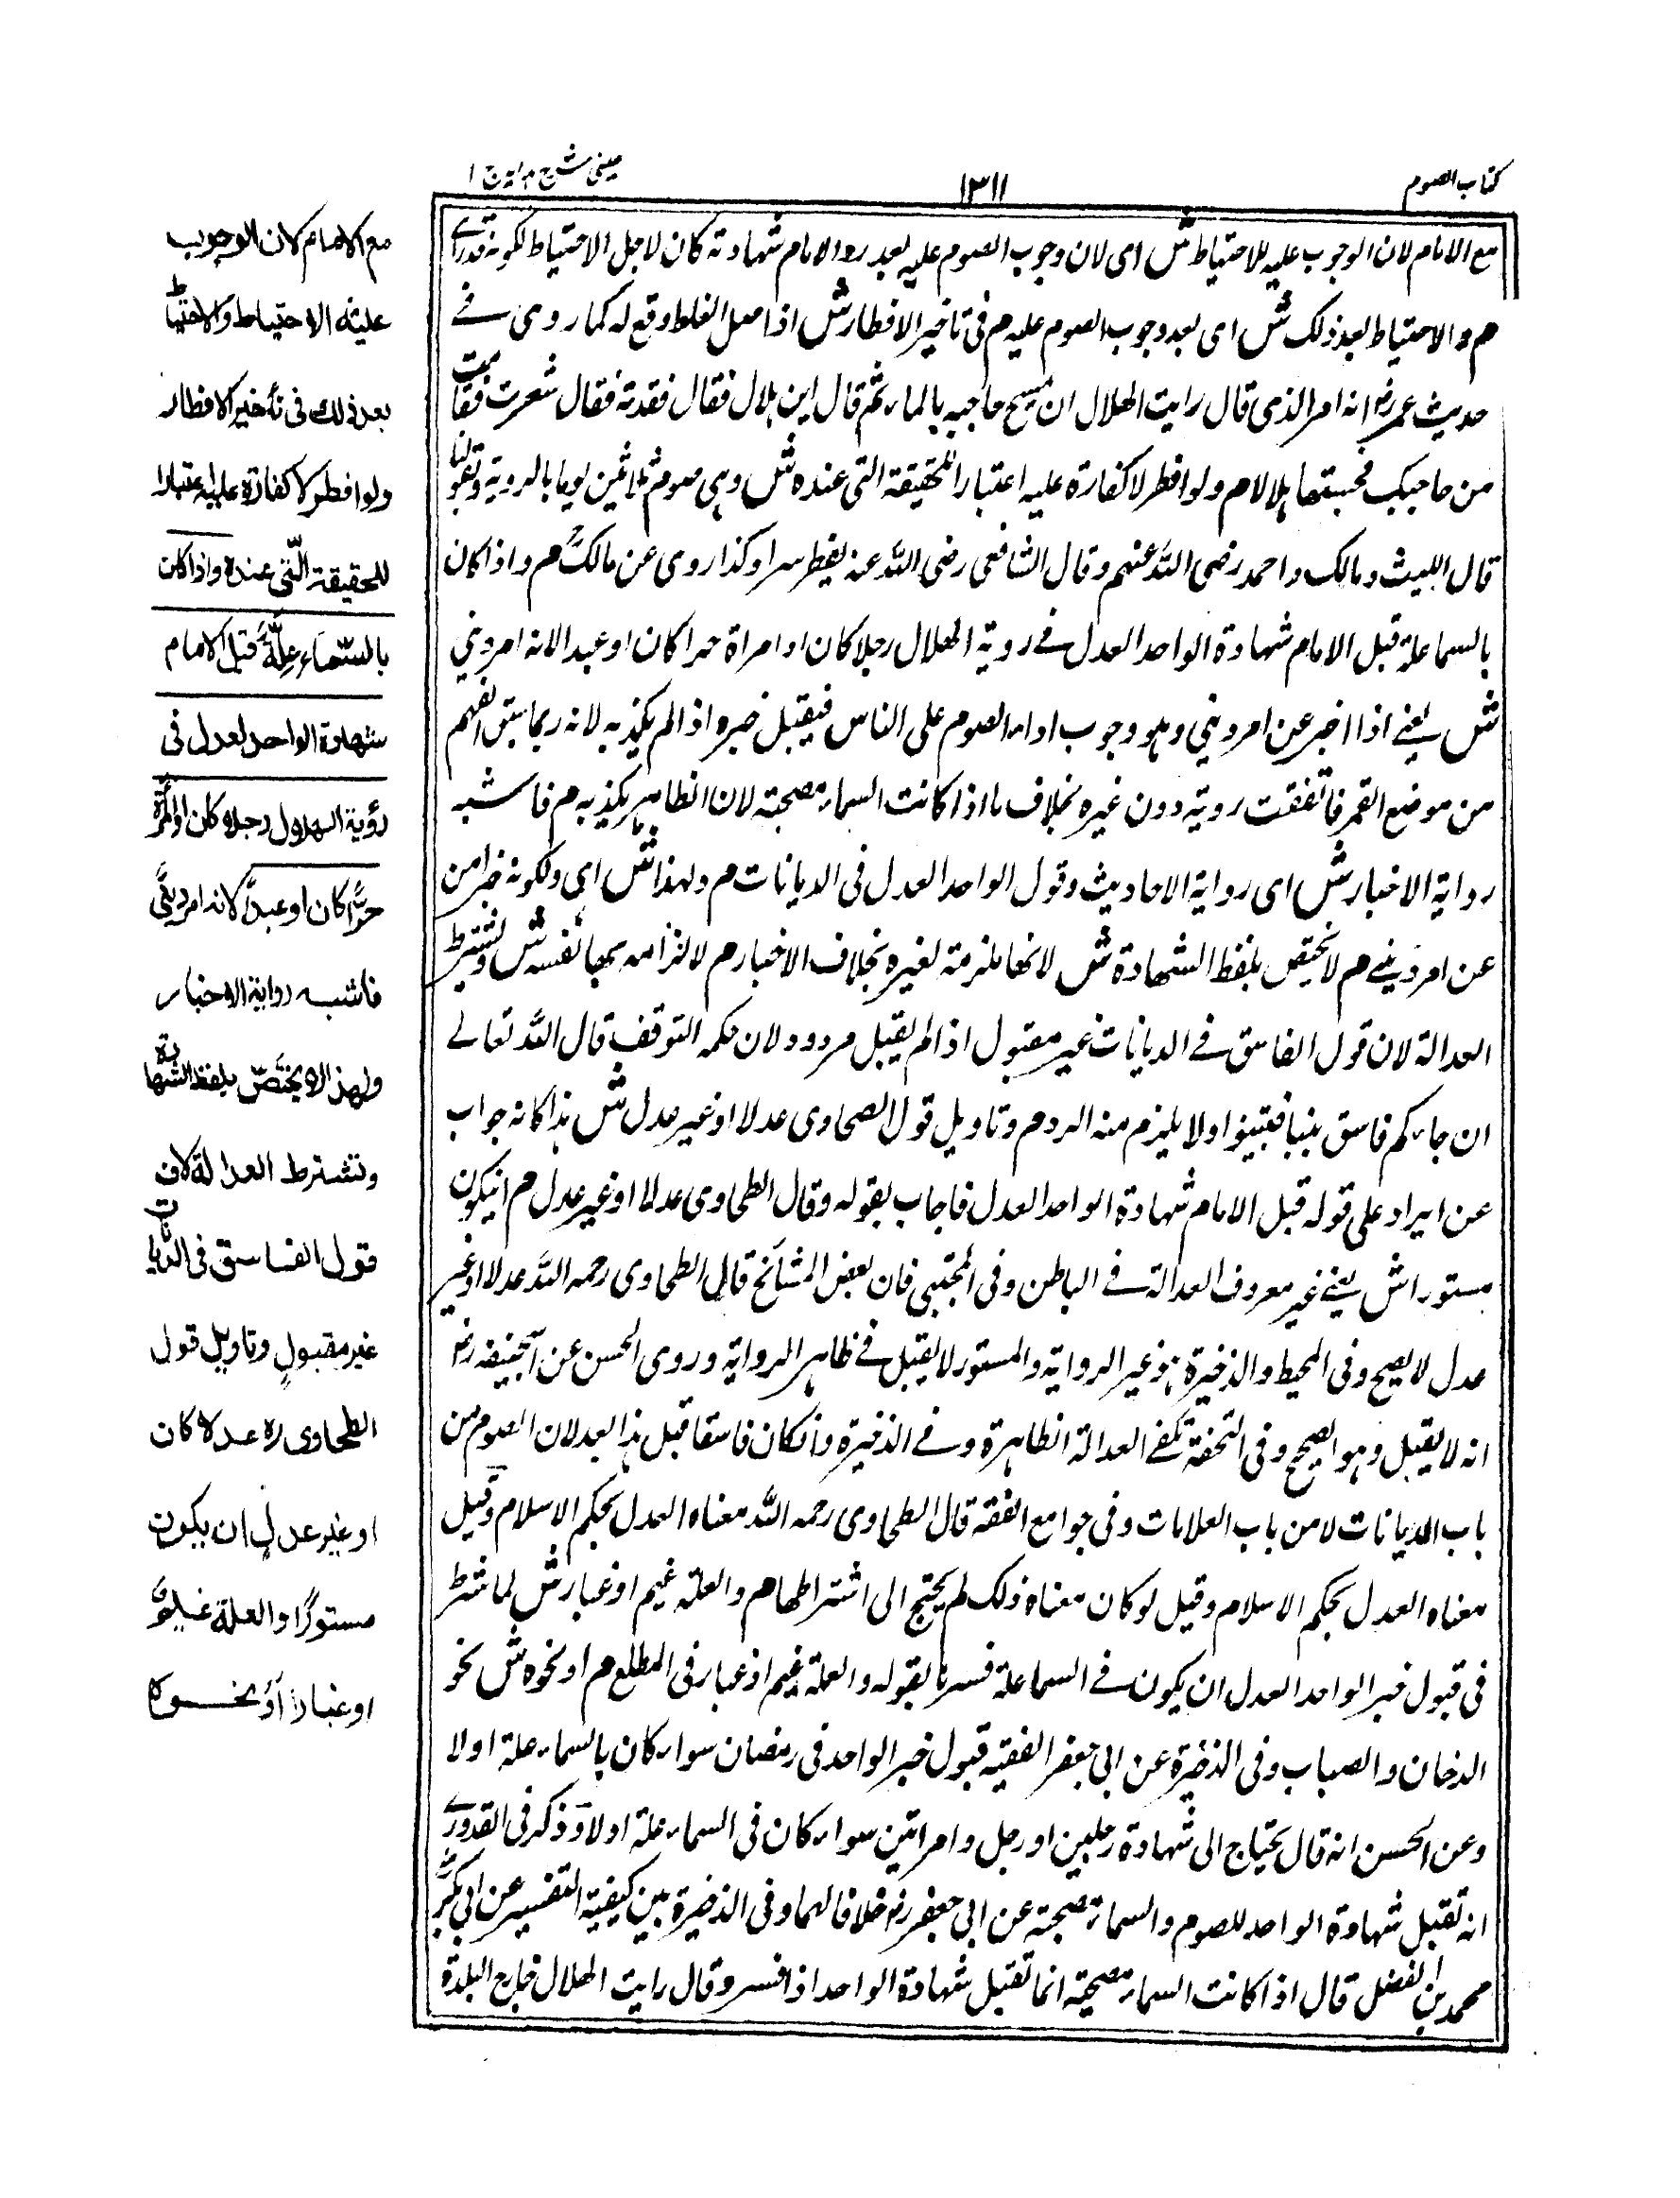 كتاب الصوم
١٣١١
عینی شرح ہدایہ ج ١
مع الامام لان الوجوب عليه للاحتياط ش اى لان وجوب الصوم عليه بعد رد الامام شهادته كان لاجل الاحتياط لكونه قد راى
م والاحتياط بعد ذلك ش اى بعد وجوب الصوم عليه م فى تاخير الافطار ش اذا مثل الغلط وقع له كما روى فے
حديث عمر رضہ انه امر الذى قال رايت الهلال ان يمسح حاجبه بالماء ثم قال اين الهلال فقال فقدته فقال شعرت قامت
من حاجبك فحسبتها هلالا م ولو افطر لا كفارة عليه اعتبارا للحقيقة التى عنده ش وهى صوم ثلاثين يوما بالروية وبقولنا
قال الليث ومالك واحمد رضى الله عنهم وقال الشافعى رضى الله عنه يفطر سرا وكذا روى عن مالك م واذا كان
بالسماء علة قبل الامام شهادة الواحد العدل فے روية الهلال رجلا كان او امراة حرا كان او عبدا لانه امر دينى
ش يعنے اذا اخبر عن امر دينى وهو وجوب اداء الصوم على الناس فيقبل خبره اذا لم يكذبه لانه ربما ينشق الغيم
من موضع القمر فاتفقت رويته دون غيره بخلاف ما اذا كانت السماء مصحية لان الظاهر يكذبه م فاشبه
رواية الاخبار ش اى رواية الاحاديث وقول الواحد العدل فى الديانات م ولهذا ش اى ولكونه خبرا من
عن امر دينے م لا يختص بلفظ الشهادة ش لانها ملزمة لغيره بخلاف الاخبار م لالتزامه بها نفسه ش ويشترط
العدالة لان قول الفاسق فے الديانات غير مقبول اذا لم يقبل مردود لان حكمه التوقف قال الله تعالے
ان جاءكم فاسق بنبا فتبينوا ولا يلزم منه الرد م وتاويل قول الطحاوى عدلا او غير عدل ش هذا كانه جواب
عن ايراد على قوله قبل الامام شهادة الواحد العدل فاجاب بقوله وقال الطحاوى عدلا او غير عدل م ان يكون
مستورا ش يعنے غير معروف العدالة فے الباطن وفى المجتبى فان بعض المشائخ قال الطحاوى رحمه الله عدلا او غير
عدل لا يصح وفى المحيط والذخيرة هو غير الرواية والمستور لا يقبل فے ظاهر الرواية وروى الحسن عن ابيحنيفه رضہ
انه لا يقبل وهو الصحيح وفى التحفة تكفے العدالة الظاهرة وفے الذخيرة وان كان فاسقا قبل هذا بعد لان الصوم من
باب الديانات لا من باب العلامات وفى جوامع الفقه قال الطحاوى رحمه الله معناه العدل بحكم الاسلام وقيل
معناه العدل بحكم الاسلام وقيل لو كان معناه ذلك لم يحتج الى اشتراطها م والعلة غيم او غبار ش لما شرط
فى قبول خبر الواحد العدل ان يكون فے السماء علة فسرها بقوله والعلة غيم او غبار فى المطلع م او نحوه ش نحو
الدخان والضباب وفى الذخيرة عن ابى جعفر الفقيه قبول خبر الواحد فى رمضان سواء كان بالسماء علة او لا
وعن الحسن انه قال يحتاج الى شهادة رجلين او رجل وامراتين سواء كان فى السماء علة او لا وذكر فى القدورے
انه تقبل شهادة الواحد للصوم والسماء مصحية عن ابى جعفر رضہ خلافا لهما وفى الذخيرة بين كيفية التفسير عن ابى بكر
محمد بن الفضل قال اذا كانت السماء مصحية انما تقبل شهادة الواحد اذا فسر وقال رايت الهلال خارج البلدة
مع الامام لان الوجوب
عليه للاحتياط والاحتياط
بعد ذلك فى تأخير الافطار
ولو افطر لا كفارة عليه اعتبارا
للحقيقة التى عنده واذا كان
بالسماء علة قبل الامام
شهادة الواحد العدل فى
رؤية الهلال رجلا كان او امرأة
حرا كان او عبدا لانه امر دينى
فاشبه رواية الاخبار
ولهذا لا يختص بلفظ الشهادة
وتشترط العدالة لان
قول الفاسق فى الديانات
غير مقبول وتاويل قول
الطحاوى ره عدلا كان
او غير عدل ان يكون
مستورا والعلة غيم
او غبار او نحوه